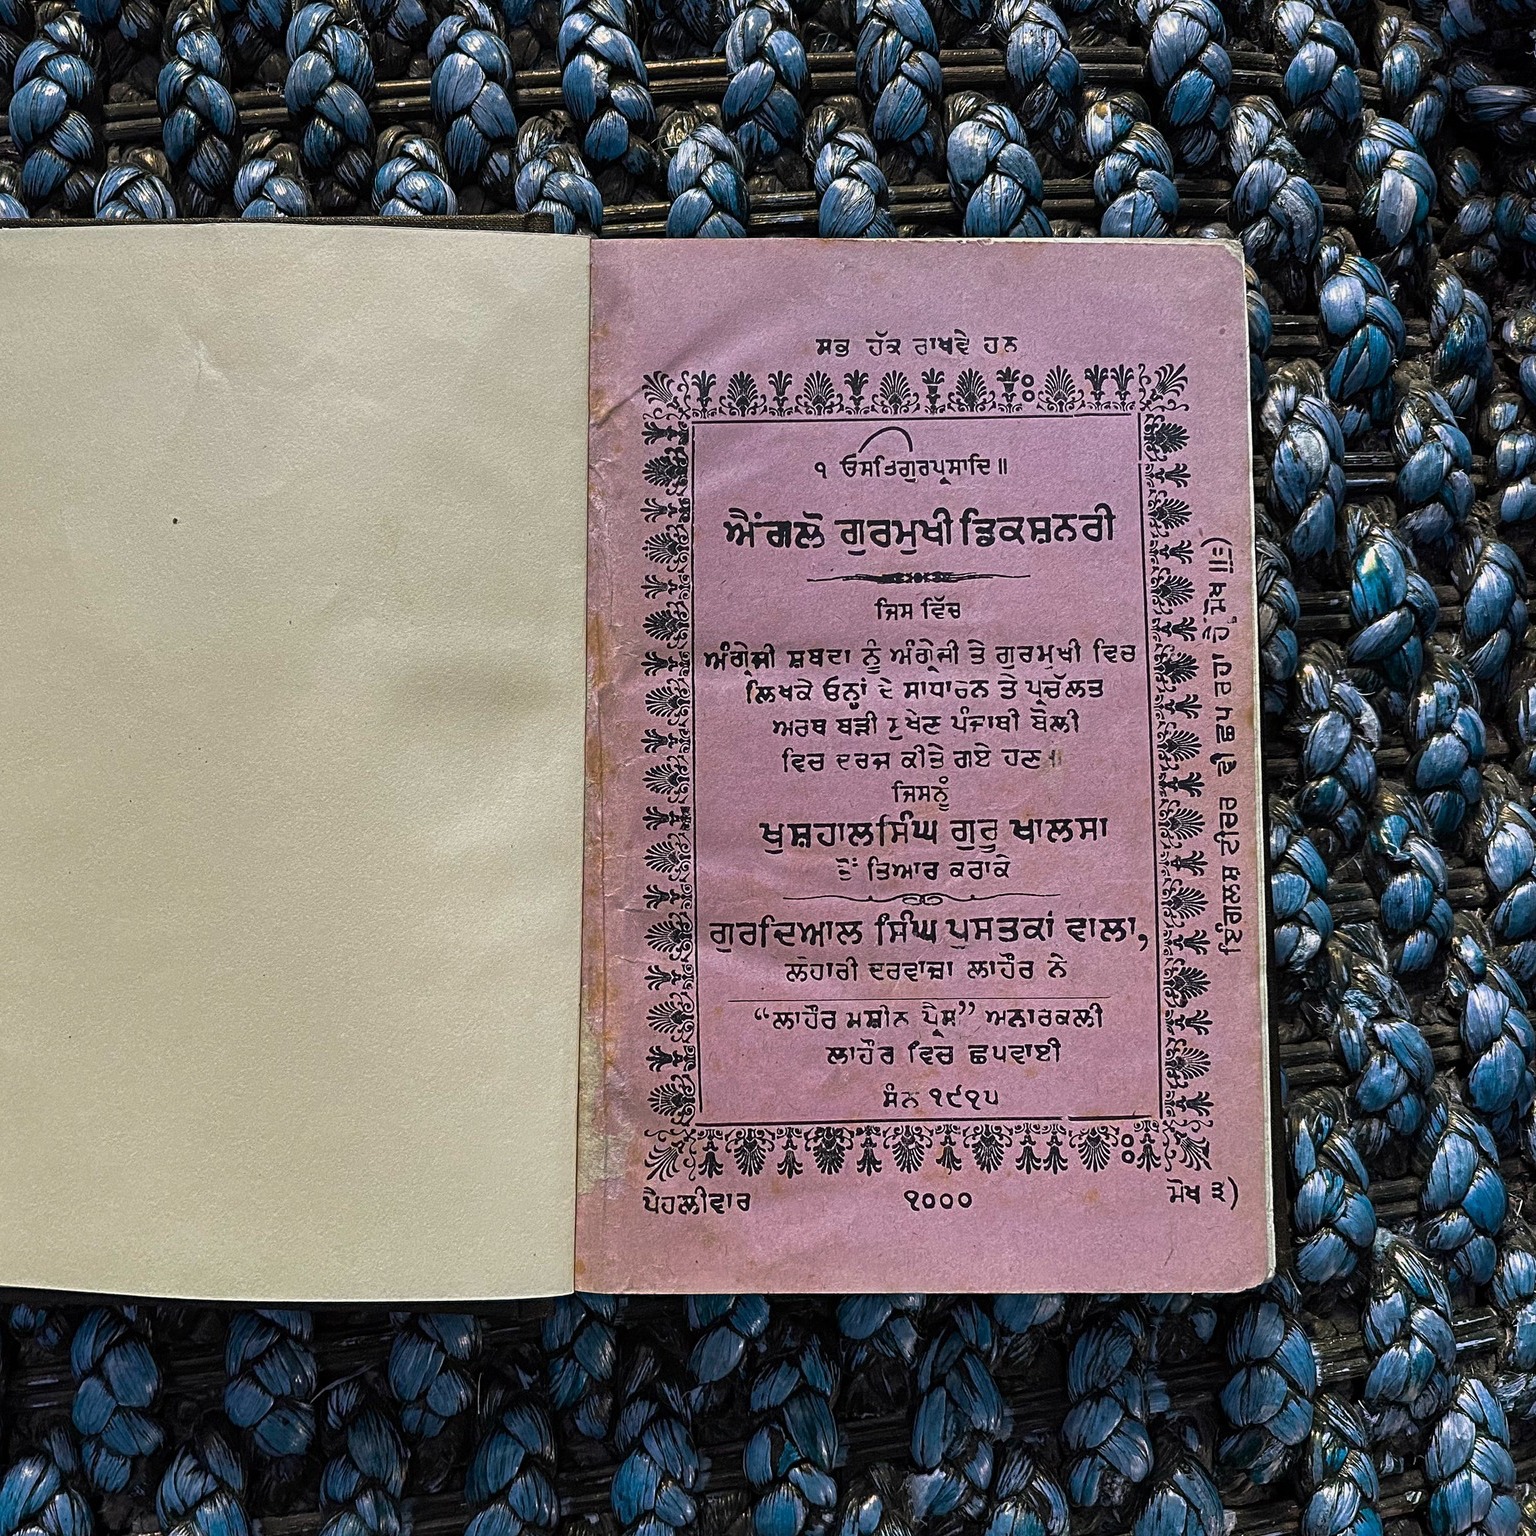 ਸਭ ਹੱਕ ਰਾਖਵੇ ਹਨ
੧ ਓਸਤਿਗੁਰਪ੍ਰਸਾਦਿ॥
ਐਂਗਲੋ ਗੁਰਮੁਖੀ ਡਿਕਸ਼ਨਰੀ
ਜਿਸ ਵਿੱਚ
ਅੰਗ੍ਰੇਜੀ ਸ਼ਬਦਾ ਨੂੰ ਅੰਗ੍ਰੇਜੀ ਤੇ ਗੁਰਮੁਖੀ ਵਿਚ
ਲਿਖਕੇ ਓਨ੍ਹਾਂ ਦੇ ਸਾਧਾਰਨ ਤੇ ਪ੍ਰਚੱਲਤ
ਅਰਥ ਬੜੀ ਸੁਖੇਣ ਪੰਜਾਬੀ ਬੋਲੀ
ਵਿਚ ਦਰਜ ਕੀਤੇ ਗਏ ਹਣ॥
ਜਿਸਨੂੰ
ਖੁਸ਼ਹਾਲਸਿੰਘ ਗੁਰੂ ਖਾਲਸਾ
ਤੋਂ ਤਿਆਰ ਕਰਾਕੇ
ਗੁਰਦਿਆਲ ਸਿੰਘ ਪੁਸਤਕਾਂ ਵਾਲਾ,
ਲੋਹਾਰੀ ਦਰਵਾਜ਼ਾ ਲਾਹੌਰ ਨੇ
“ਲਾਹੌਰ ਮਸ਼ੀਨ ਪ੍ਰੈਸ” ਅਨਾਰਕਲੀ
ਲਾਹੌਰ ਵਿਚ ਛਪਵਾਈ
ਸੰਨ ੧੯੧੫
ਪੈਹਲੀਵਾਰ ੧੦੦੦ ਮੋਖ ੩)
ਇੰਗਲਸ਼ ਟੀਚਰ ਵੀ ਛਪ ਰਹਾ ਹੈ, ਮੋਖ